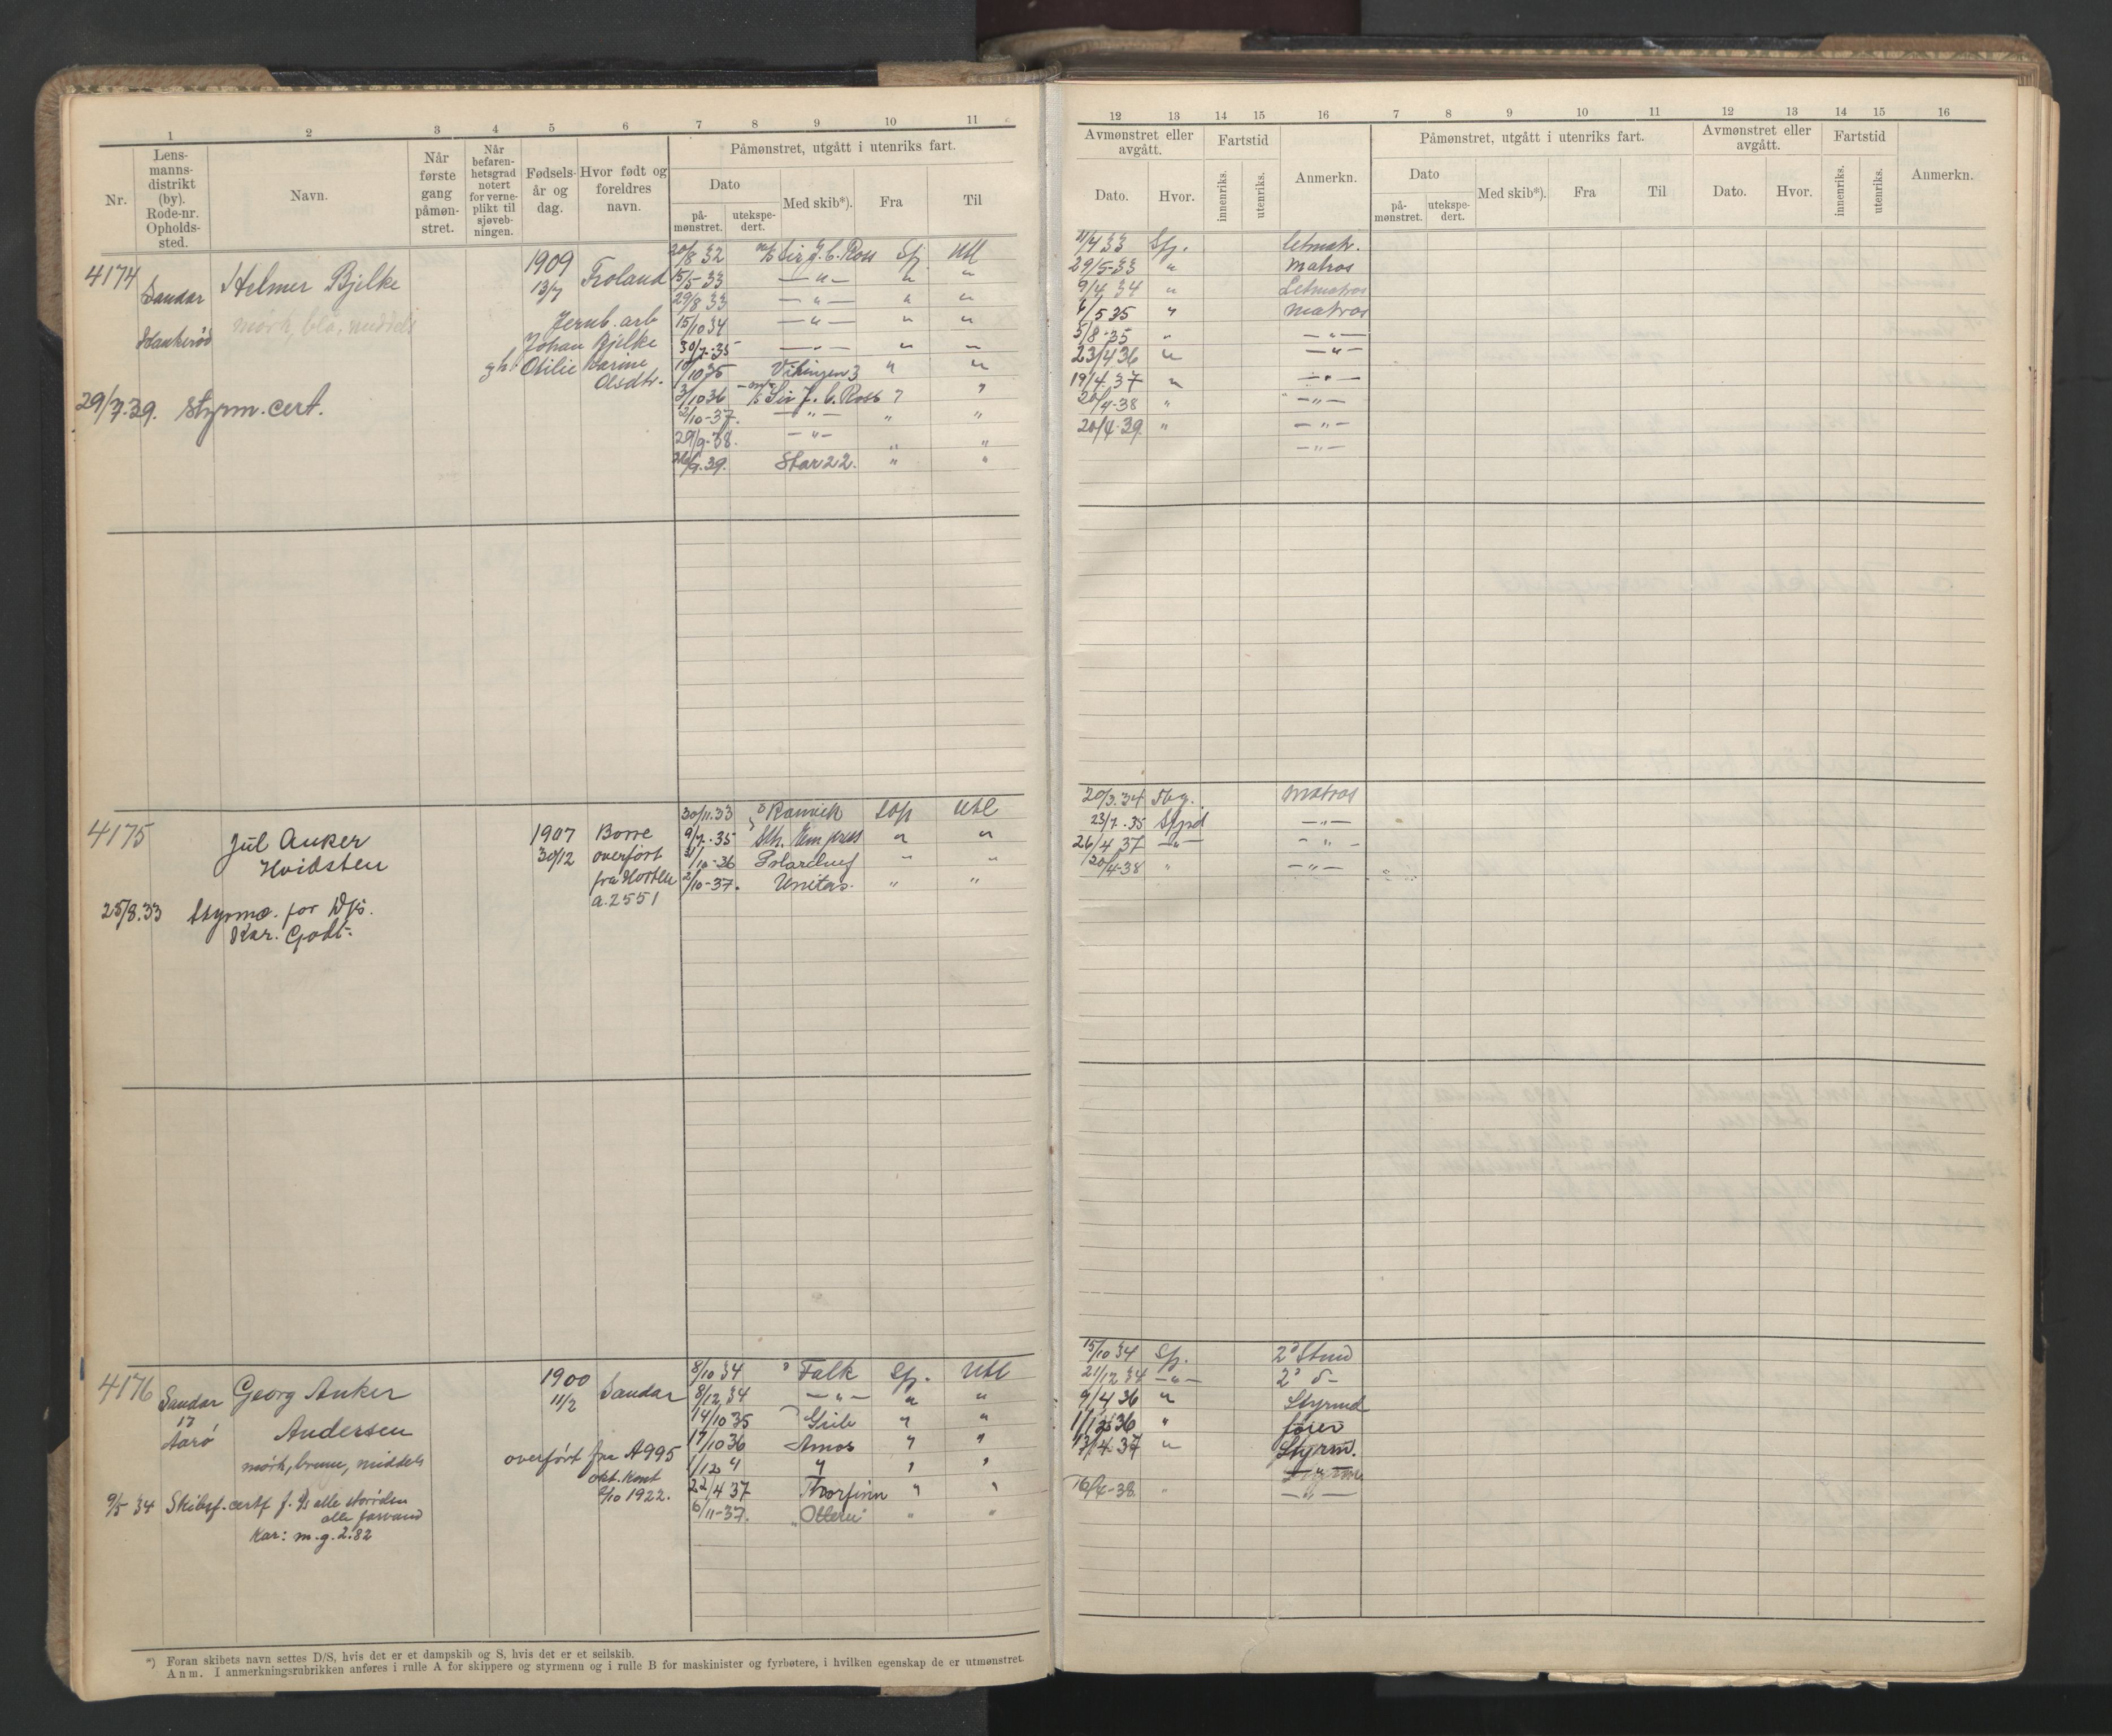 1 2 3 4 5 6 7 8 9 10 11
Nr. Lens-manns-distrikt (by). Rode-nr. Opholds-sted. Navn. Når første gang påmøn-stret. Når befaren-hetsgrad notert for verne-plikt til sjøveb-ningen. Fødsels-år og dag. Hvor født og foreldres navn.
Påmønstret, utgått i utenriks fart.
Dato på-mønstret. utekspe-dert. Med skib*). Fra Til
4174 Sandar Helmer Bjelke 1909 13/7 Froland
Haukerød mørk, blå, middels
Jernb. arb
Johan Bjelke
gh. Otilie Karine
Olsdtr.
29/7.39. Styrm. cert.
20/8 32 Sir J. C. Ross Sf. Utl
15/5-33 — " — " "
29/8 33 — " — " "
15/10 34 — " — " "
30/7.-35 — " — " "
10/10 35 Vikingen 3 " "
3/10 36 Sir J. C. Ross " "
2/10-37. — " — " "
29/9-38. — " — " "
9.39. Star 22. " "
4175 Jul Anker 1907 Borre
Hvidsten 30/12 overført
fra Horten
a.2551
25/8.33 Styrmc. for D/S.
Kar. Godt-
30/11.33 Ranvik Utl
9/7.-35 " "
/10-36 " "
2/10-37. Unitas. " "
4176 Sandar Georg Anker 1900 Sandar
17 11/2
Aarø Andersen
mørk, brune, middels
overført fra A 995
okt. Kont
2/10 1922.
9/5 34 Skibsf. certf f. D/s alle storrelser
alle farvand
Kar: m.g. 2.82
8/10 34 Falk Sf. Utl
8/12 34 — " — " "
14/10 35 " "
17/10 36 Amos " "
1/12 " " " "
22/4 37 Thorfinn " "
6/11-37. "Ottern" " "
*) Foran skibets navn settes D/S, hvis det er et dampskib og S, hvis det er et seilskib.
Anm. I anmerkningsrubrikken anføres i rulle A for skippere og styrmenn og i rulle B for maskinister og fyrbøtere, i hvilken egenskap de er utmønstret.
12 13 14 15 16 7 8 9 10 11 12 13 14 15 16
Avmønstret eller avgått. Fartstid Anmerkn. Påmønstret, utgått i utenriks fart. Avmønstret eller avgått. Fartstid Anmerkn.
Dato. Hvor. innenriks. utenriks. Dato på-mønstret. utekspe-dert. Med skib*). Fra Til Dato. Hvor. innenriks. utenriks.
11/4 33 Sfj. Letmatr.
29/5-33 " Matros
9/4 34 " Letmatros
6/5 35 " Matros
5/8-35 " — " —
23/4 36 " — " —
19/4.37 " — " —
20/4-38 " — " —
20/4.39. " — " —
— " —
20/3.34 Tbg. Matros
23/7.-35 Sfjrd — " —
26/4 37 — " — — " —
20/4-38 " — " —
15/10 34 Sfj. 2d Strmd
21/12 34 — " — 2d d—
9/4 36 " Styrmd
1/12 36 " fører
13/4-37 " Styrm.
16/4-38. " — " —